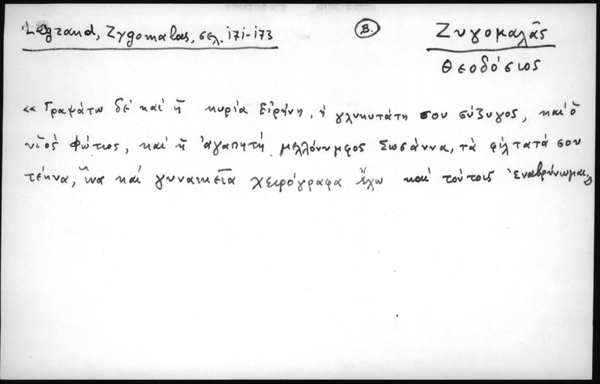 Legrand, Zygomalas, σελ. 171-173
Β.
Ζυγομαλᾶς
Θεοδόσιος
«Γραψάτω δὲ καὶ ἡ κυρία Εἰρήνη, ἡ γλυκυτάτη σου σύζυγος, καὶ ὁ
υἱὸς Φώτιος, καὶ ἡ ἀγαπητὴ μελλόνυμφος Σωσάννα, τὰ φίλτατά σου
τέκνα, ἵνα καὶ γυναικεῖα χειρόγραφα ἔχω καὶ τούτοις ἐναβρύνωμαι»